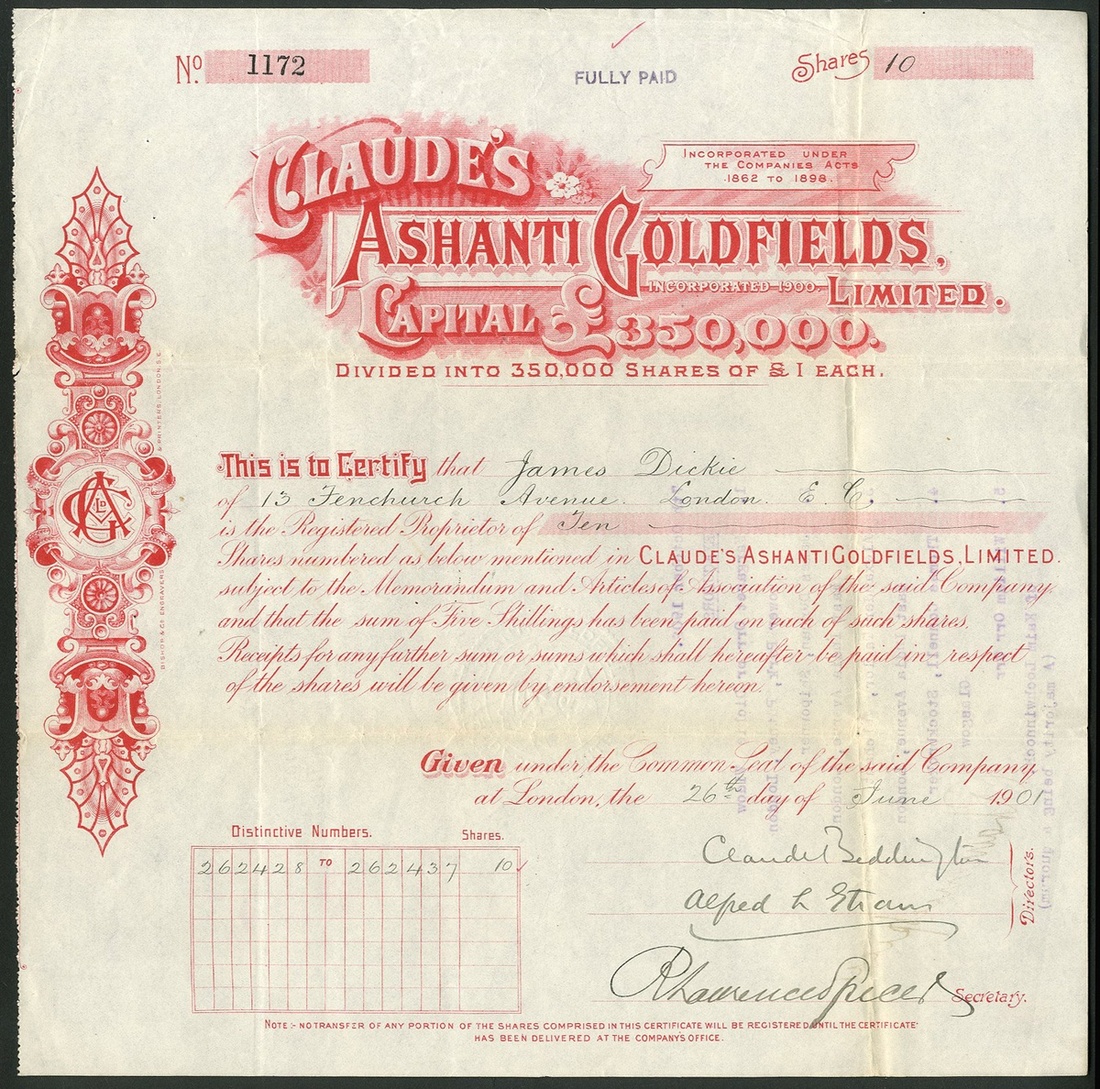 No. 1172
FULLY PAID
Shares 10
CLAUDE'S
INCORPORATED UNDER
THE COMPANIES ACTS
1862 TO 1898.
ASHANTI GOLDFIELDS,
INCORPORATED 1900. LIMITED.
CAPITAL £350,000.
DIVIDED INTO 350,000 SHARES OF £1 EACH.
This is to Certify that James Dickie
of 13 Fenchurch Avenue. London. E C.
is the Registered Proprietor of Ten
Shares numbered as below mentioned in CLAUDE'S ASHANTI GOLDFIELDS, LIMITED.
subject to the Memorandum and Articles of Association of the said Company
and that the sum of Five Shillings has been paid on each of such shares.
Receipts for any further sum or sums which shall hereafter be paid in respect
of the shares will be given by endorsement hereon.
Given under the Common Seal of the said Company
at London, the 26th day of June 1901
Distinctive Numbers. Shares.
262428 TO 262437 10
Claude Beddington
Alfred L Straus
Directors.
Secretary.
NOTE:- NO TRANSFER OF ANY PORTION OF THE SHARES COMPRISED IN THIS CERTIFICATE WILL BE REGISTERED UNTIL THE CERTIFICATE
HAS BEEN DELIVERED AT THE COMPANY'S OFFICE.
BISHOP & CO ENGRAVERS
& PRINTERS, LONDON, S.E.